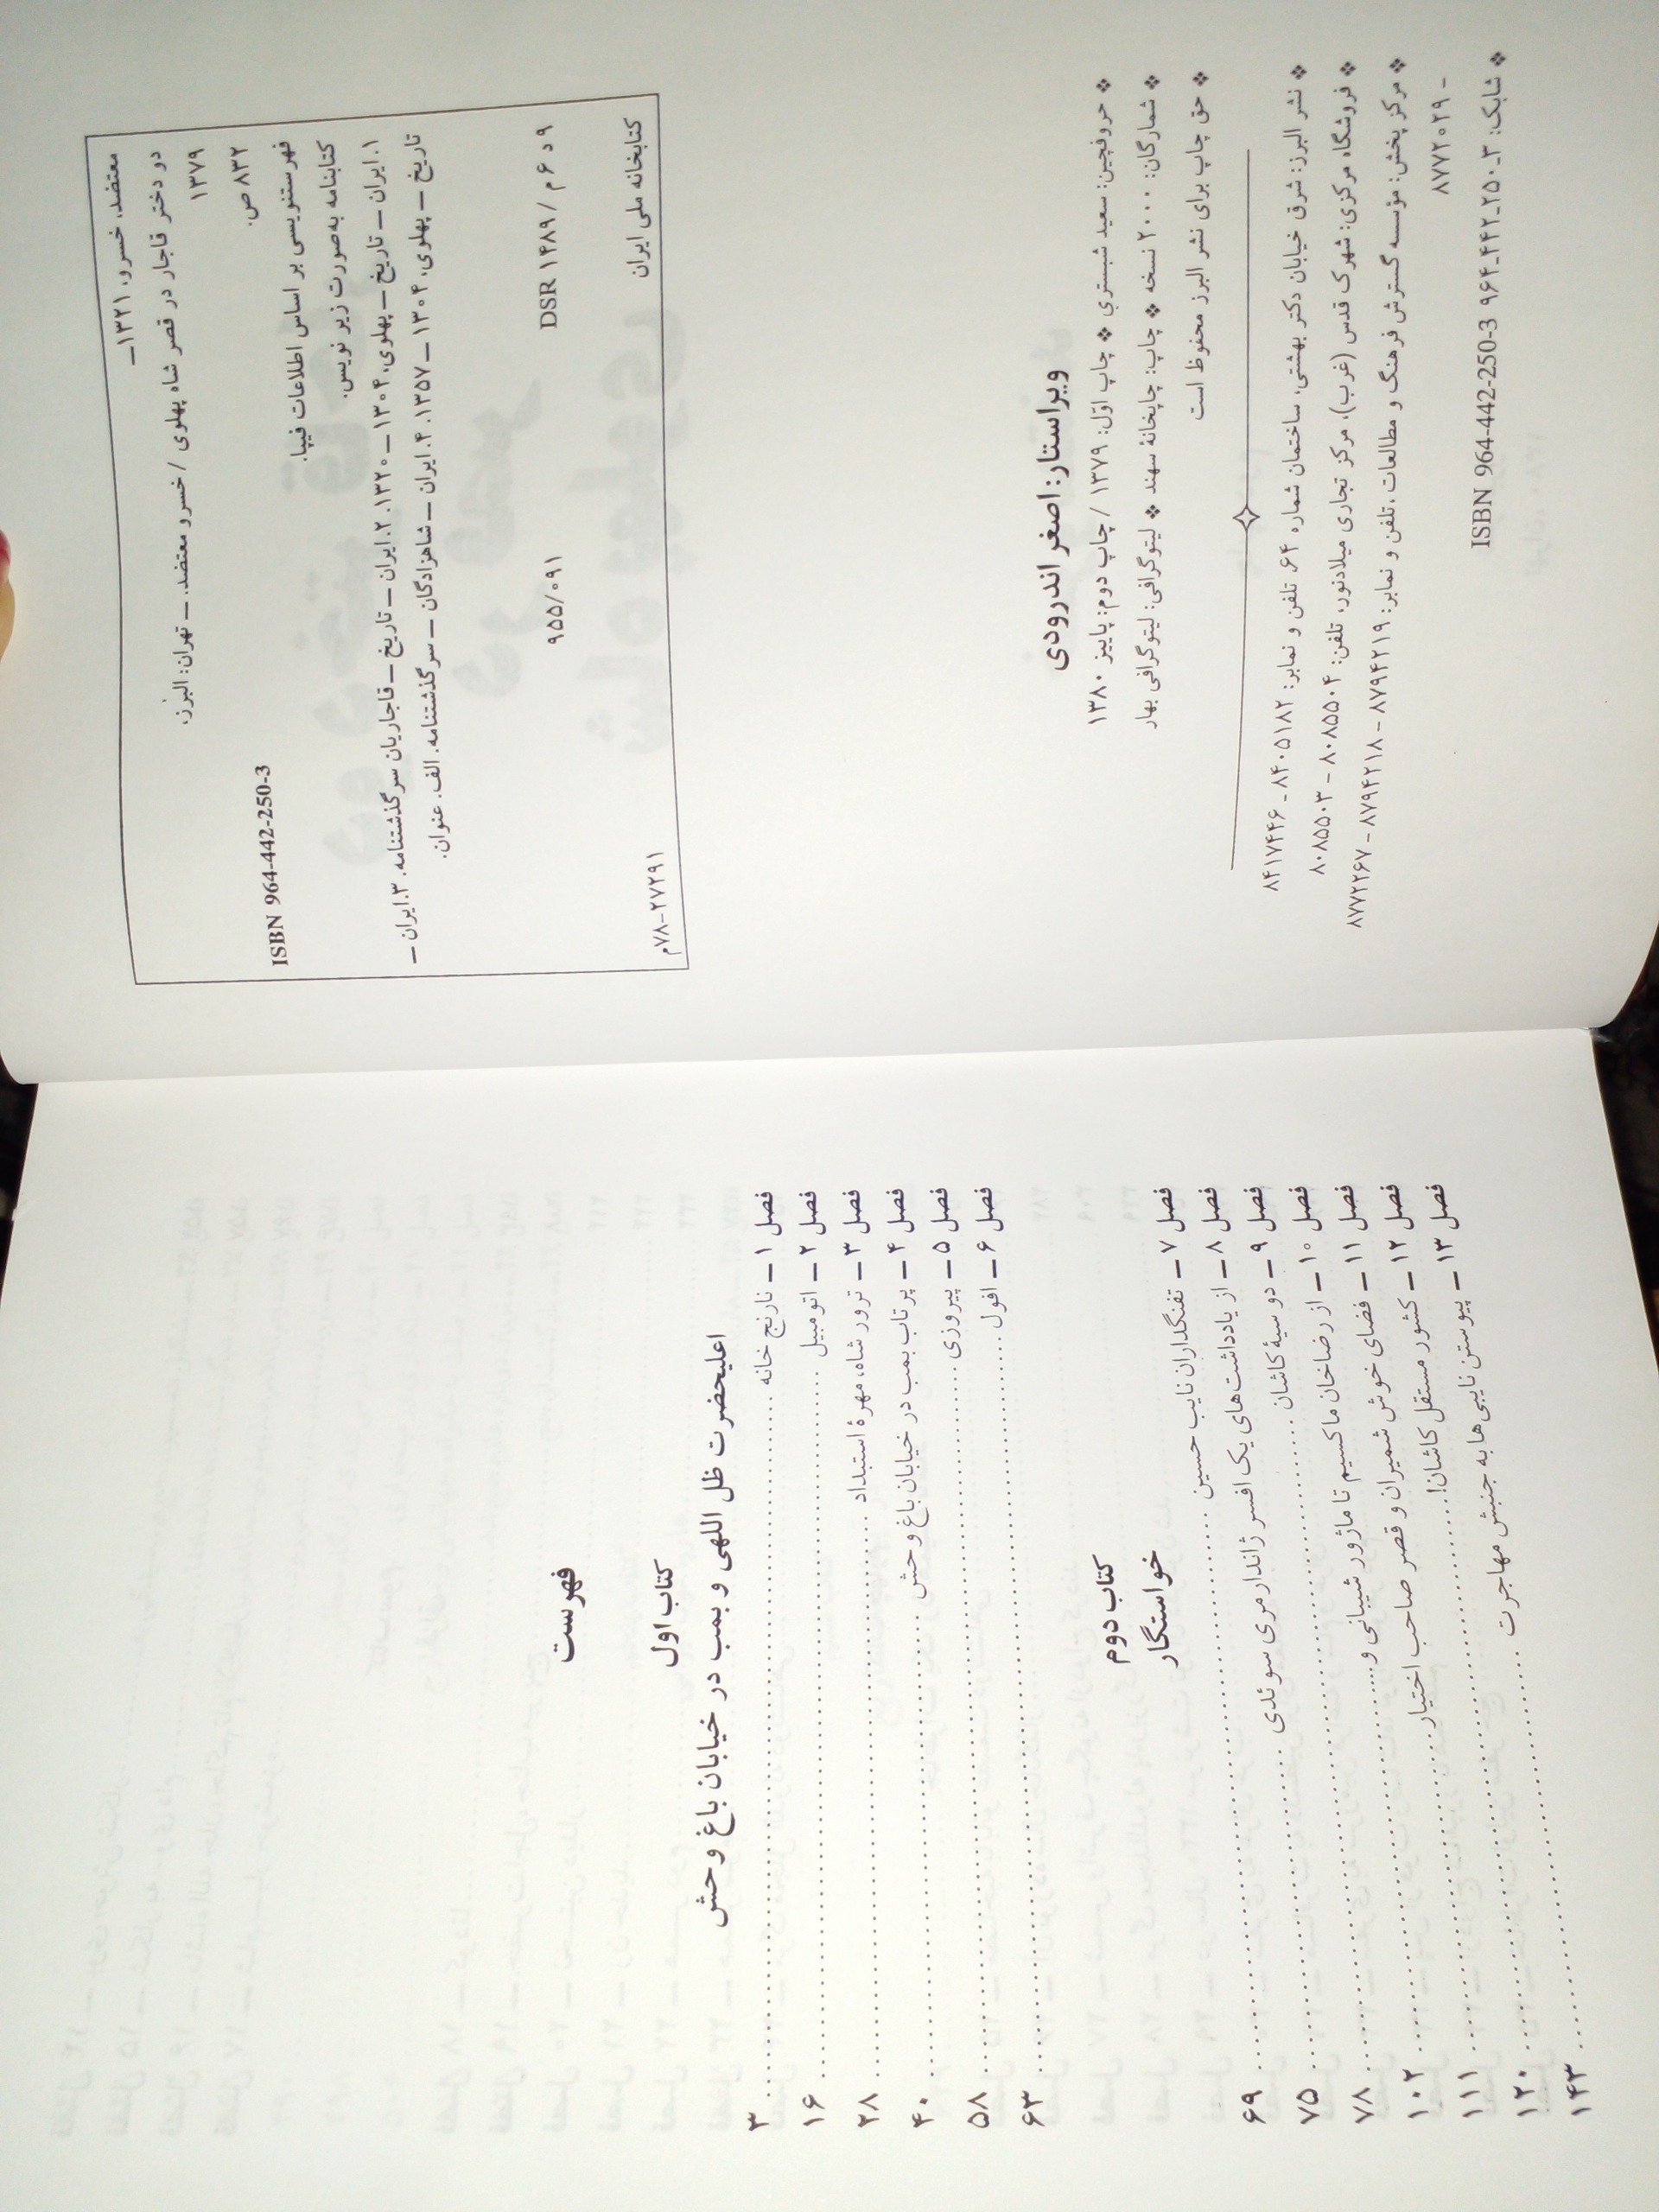 معتضد، خسرو، ۱۳۲۱ــ
دو دختر قاجار در قصر شاه پهلوی / خسرو معتضد. ــ تهران: البرز،
۱۳۷۹
۸۳۲ ص.
ISBN 964-442-250-3
فهرستنویسی بر اساس اطلاعات فیپا.
کتابنامه به‌صورت زیر نویس.
۱. ایران ــ تاریخ ــ پهلوی، ۱۳۰۴ ــ ۱۳۲۰. ۲. ایران ــ تاریخ ــ قاجاریان سرگذشتنامه. ۳. ایران ــ
تاریخ ــ پهلوی، ۱۳۰۴ ــ ۱۳۵۷. ۴. ایران ــ شاهزادگان ــ سرگذشتنامه. الف. عنوان.
۹ د ۶ م / DSR ۱۴۸۹
۹۵۵/۰۹۱
کتابخانه ملی ایران
۷۸-۲۷۲۹۱م
ویراستار: اصغر اندرودی
❖ حروفچین: سعید شبستری ❖ چاپ اوّل: ۱۳۷۹ / چاپ دوم: پاییز ۱۳۸۰
❖ شمارگان: ۲۰۰۰ نسخه ❖ چاپ: چاپخانهٔ سهند ❖ لیتوگرافی: لیتوگرافی بهار
❖ حق چاپ برای نشر البرز محفوظ است
❖ نشر البرز: شرق خیابان دکتر بهشتی، ساختمان شماره ۶۴. تلفن و نمابر: ۸۴۰۵۱۸۲ ـ ۸۴۱۷۴۴۶
❖ فروشگاه مرکزی: شهرک قدس (غرب)، مرکز تجاری میلادنور، تلفن: ۸۰۸۵۵۰۴ - ۸۰۸۵۵۰۳
❖ مرکز پخش: مؤسسه گسترش فرهنگ و مطالعات ،تلفن و نمابر: ۸۷۹۴۲۱۹ - ۸۷۹۴۲۱۸ - ۸۷۷۲۲۶۷
- ۸۷۷۲۰۲۹
❖ شابک: ۳ـ۲۵۰ـ۴۴۲ـ۹۶۴ ISBN 964-442-250-3
فهرست
کتاب اول
اعلیحضرت ظل اللهی و بمب در خیابان باغ وحش
فصل ۱ ــ نارنج خانه ........ ۳
فصل ۲ ــ اتومبیل ........ ۱۶
فصل ۳ ــ ترور شاه، مهرهٔ استبداد ........ ۲۸
فصل ۴ ــ پرتاب بمب در خیابان باغ وحش ........ ۴۰
فصل ۵ ــ پیروزی ........ ۵۸
فصل ۶ ــ افول ........ ۶۳
کتاب دوم
خواستگار
فصل ۷ ــ تفنگداران نایب حسین ........ ۶۹
فصل ۸ ــ از یادداشت‌های یک افسر ژاندارمری سوئدی ........ ۷۵
فصل ۹ ــ دو سیهٔ کاشان ........ ۷۸
فصل ۱۰ ــ از رضاخان ماکسیم تا ماژور شیبانی و ........ ۱۰۲
فصل ۱۱ ــ فضای خوش شمیران و قصر صاحب اختیار ........ ۱۱۱
فصل ۱۲ ــ کشور مستقل کاشان! ........ ۱۲۰
فصل ۱۳ ــ پیوستن نایبی‌ها به جنبش مهاجرت ........ ۱۴۳